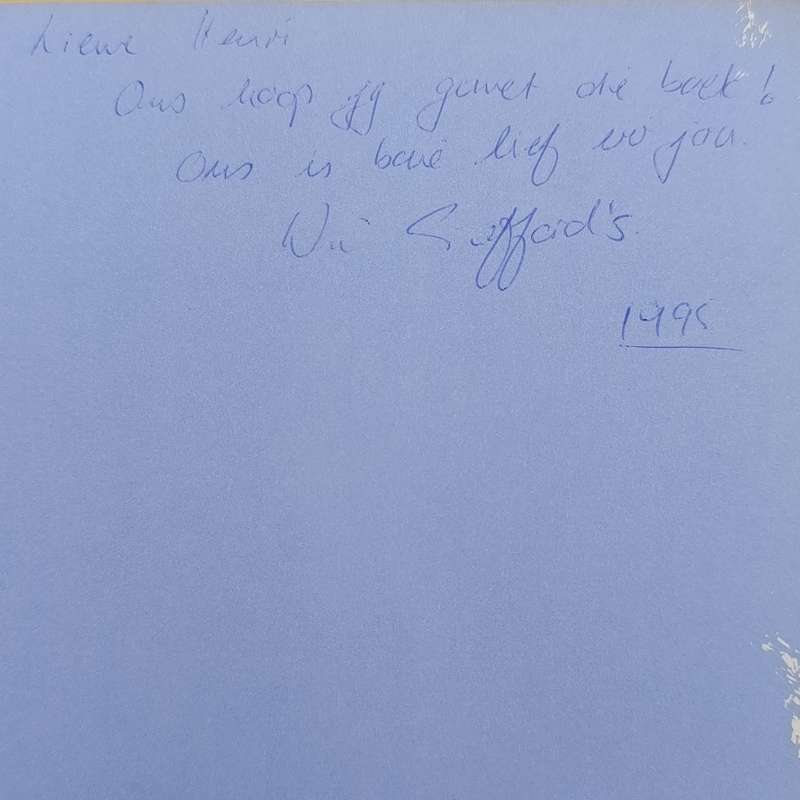 Liewe Henri
Ons hoop jy geniet die boek!
Ons is baie lief vir jou.
Die
1995